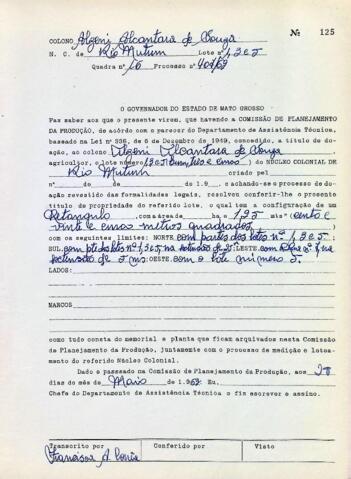 Nº 125
COLONO Algeni Alcantara de Souza
N. C. de Rio Mutum Lote nº 1,3 e 5
Quadra nº 16 Processo nº
O GOVERNADOR DO ESTADO DE MATO GROSSO
Faz saber aos que o presente virem, que havendo a COMISSÃO DE PLANEJAMENTO
DA PRODUÇÃO, de acôrdo com o parecer do Departamento de Assistência Técnica,
baseado na Lei nº 336, de 6 de Dezembro de 1949, concedido, a título de doa-
ção, ao colono Algeni Alcantara de Souza
agricultor, o lote número 1,3 e 5 do NÚCLEO COLONIAL DE
Rio Mutum criado pel
nº de de de 1.9 e achando-se o processo de do-
ação revestido das formalidades legais, resolveu conferir-lhe o presente
título de propriedade do referido lote, o qual tem a configuração de um
Retangulo com a área de ha e 125 mts² (cento e
vinte e cinco metros quadrados )
com os seguintes limites: NORTE com partes dos lotes nº 1,3 e 5;
SUL com pte dos lotes nº 1,3 e 5, na LESTE com na
extensão de 5 ms: OESTE com o lote numero 5.
LADOS:
MARCOS
como tudo consta do memorial e planta que ficam arquivados nesta Comissão
de Planejamento da Produção, juntamente com o processo de medição e lotea-
mento do referido Núcleo Colonial.
Dado e passado na Comissão de Planejamento da Produção, aos 20
dias do mês de Maio de 1.962. Eu,
Chefe do Departamento de Assistência Técnica o fiz escrever e assino.
Transcrito por Conferido por Visto
Francisca A.